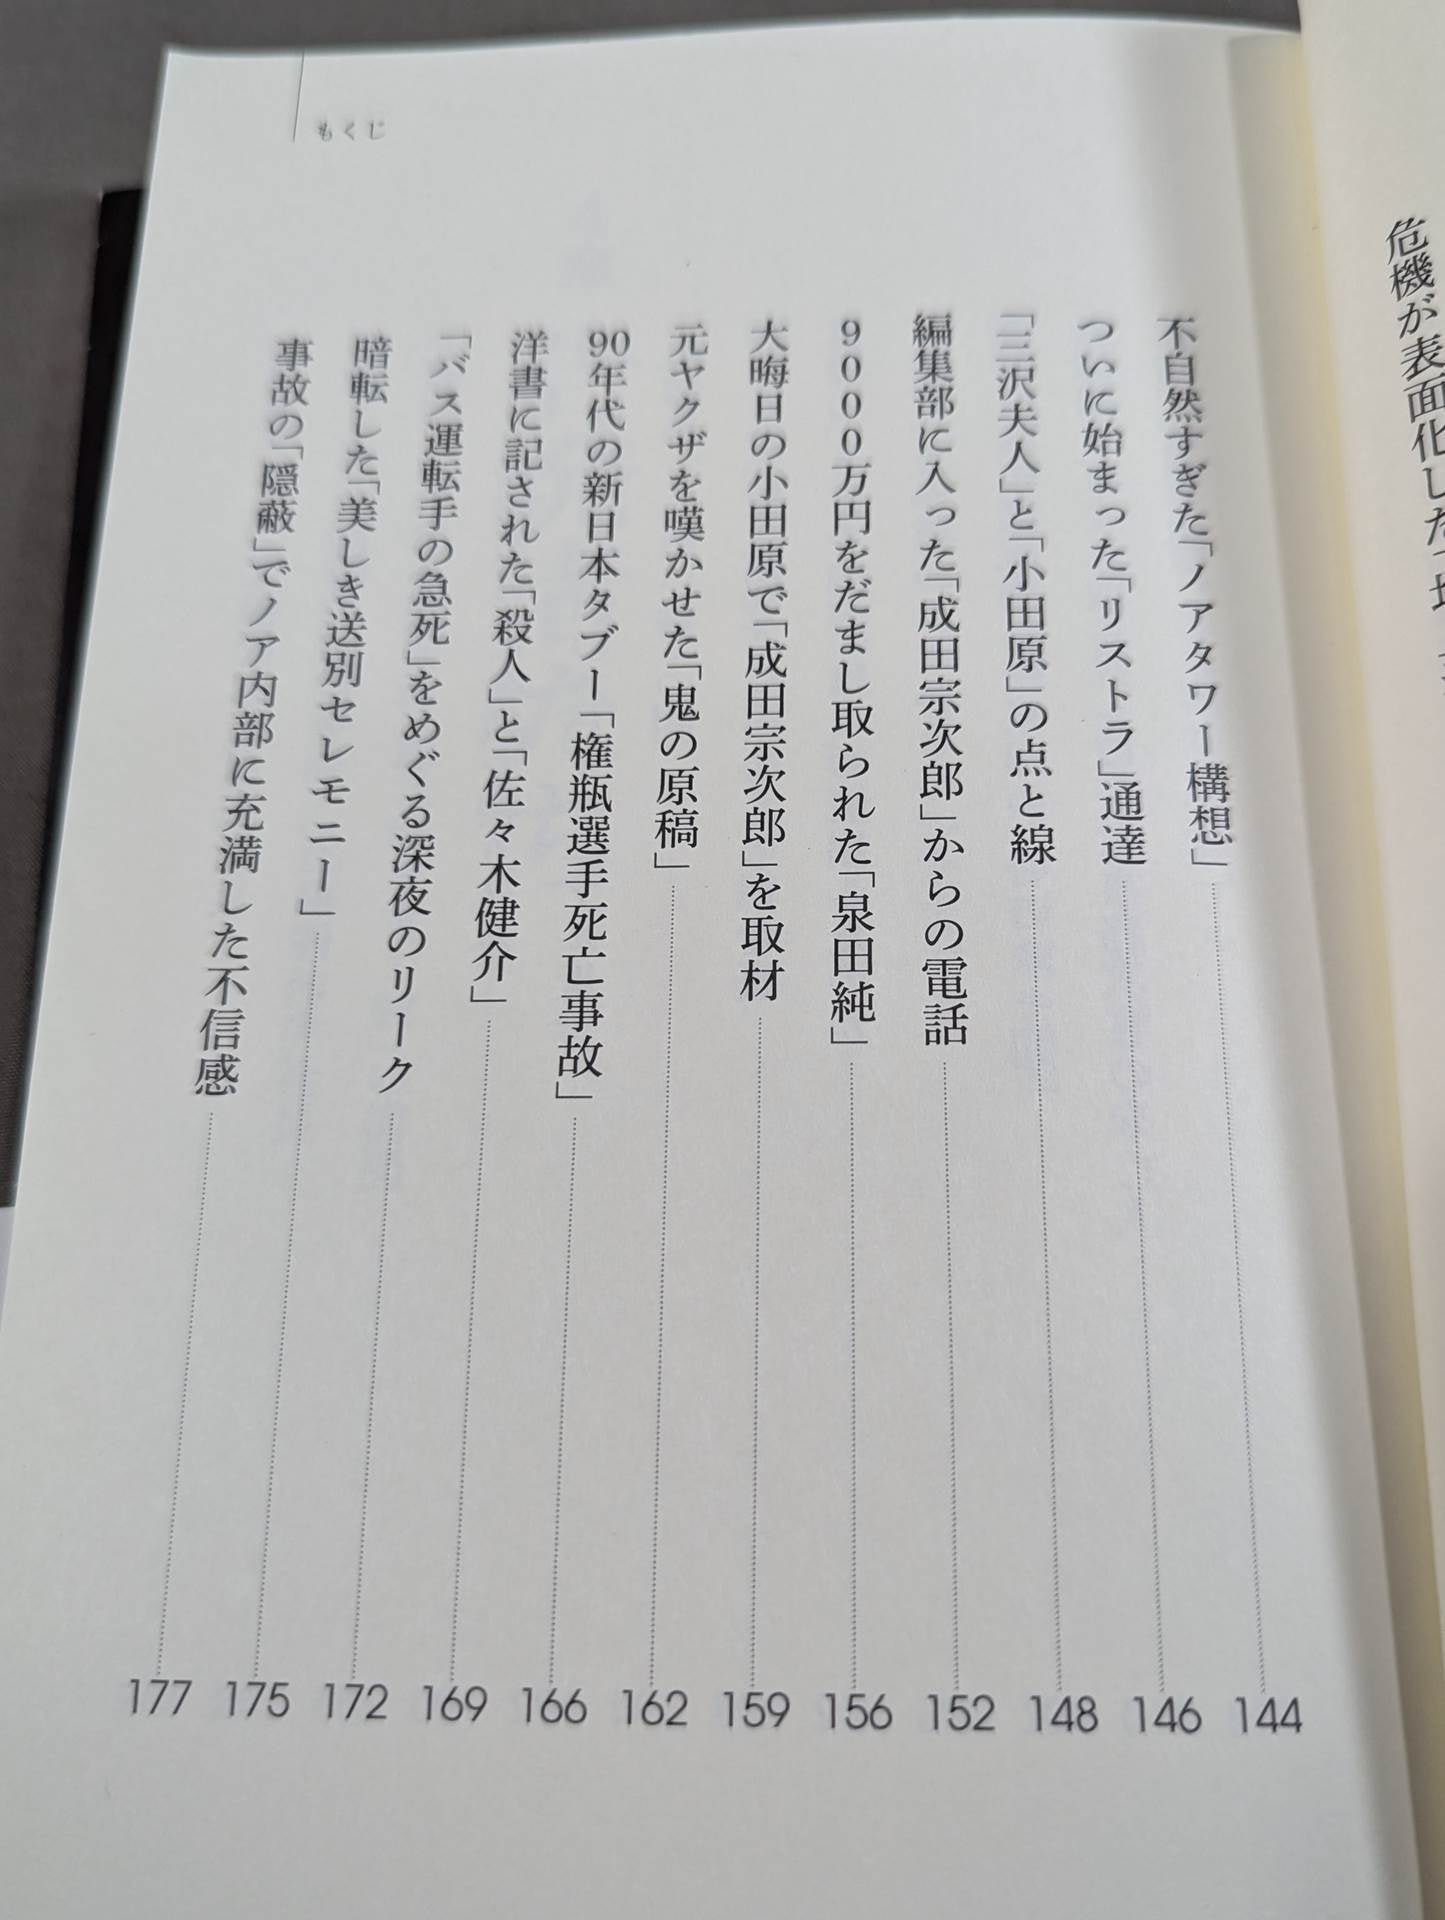 危機が表面化した「
不自然すぎた「ノアタワー構想」 144
ついに始まった「リストラ」通達 146
「三沢夫人」と「小田原」の点と線 148
編集部に入った「成田宗次郎」からの電話 152
9000万円をだまし取られた「泉田純」 156
大晦日の小田原で「成田宗次郎」を取材 159
元ヤクザを嘆かせた「鬼の原稿」 162
90年代の新日本タブー「権瓶選手死亡事故」 166
洋書に記された「殺人」と「佐々木健介」 169
「バス運転手の急死」をめぐる深夜のリーク 172
暗転した「美しき送別セレモニー」 175
事故の「隠蔽」でノア内部に充満した不信感 177
もくじ